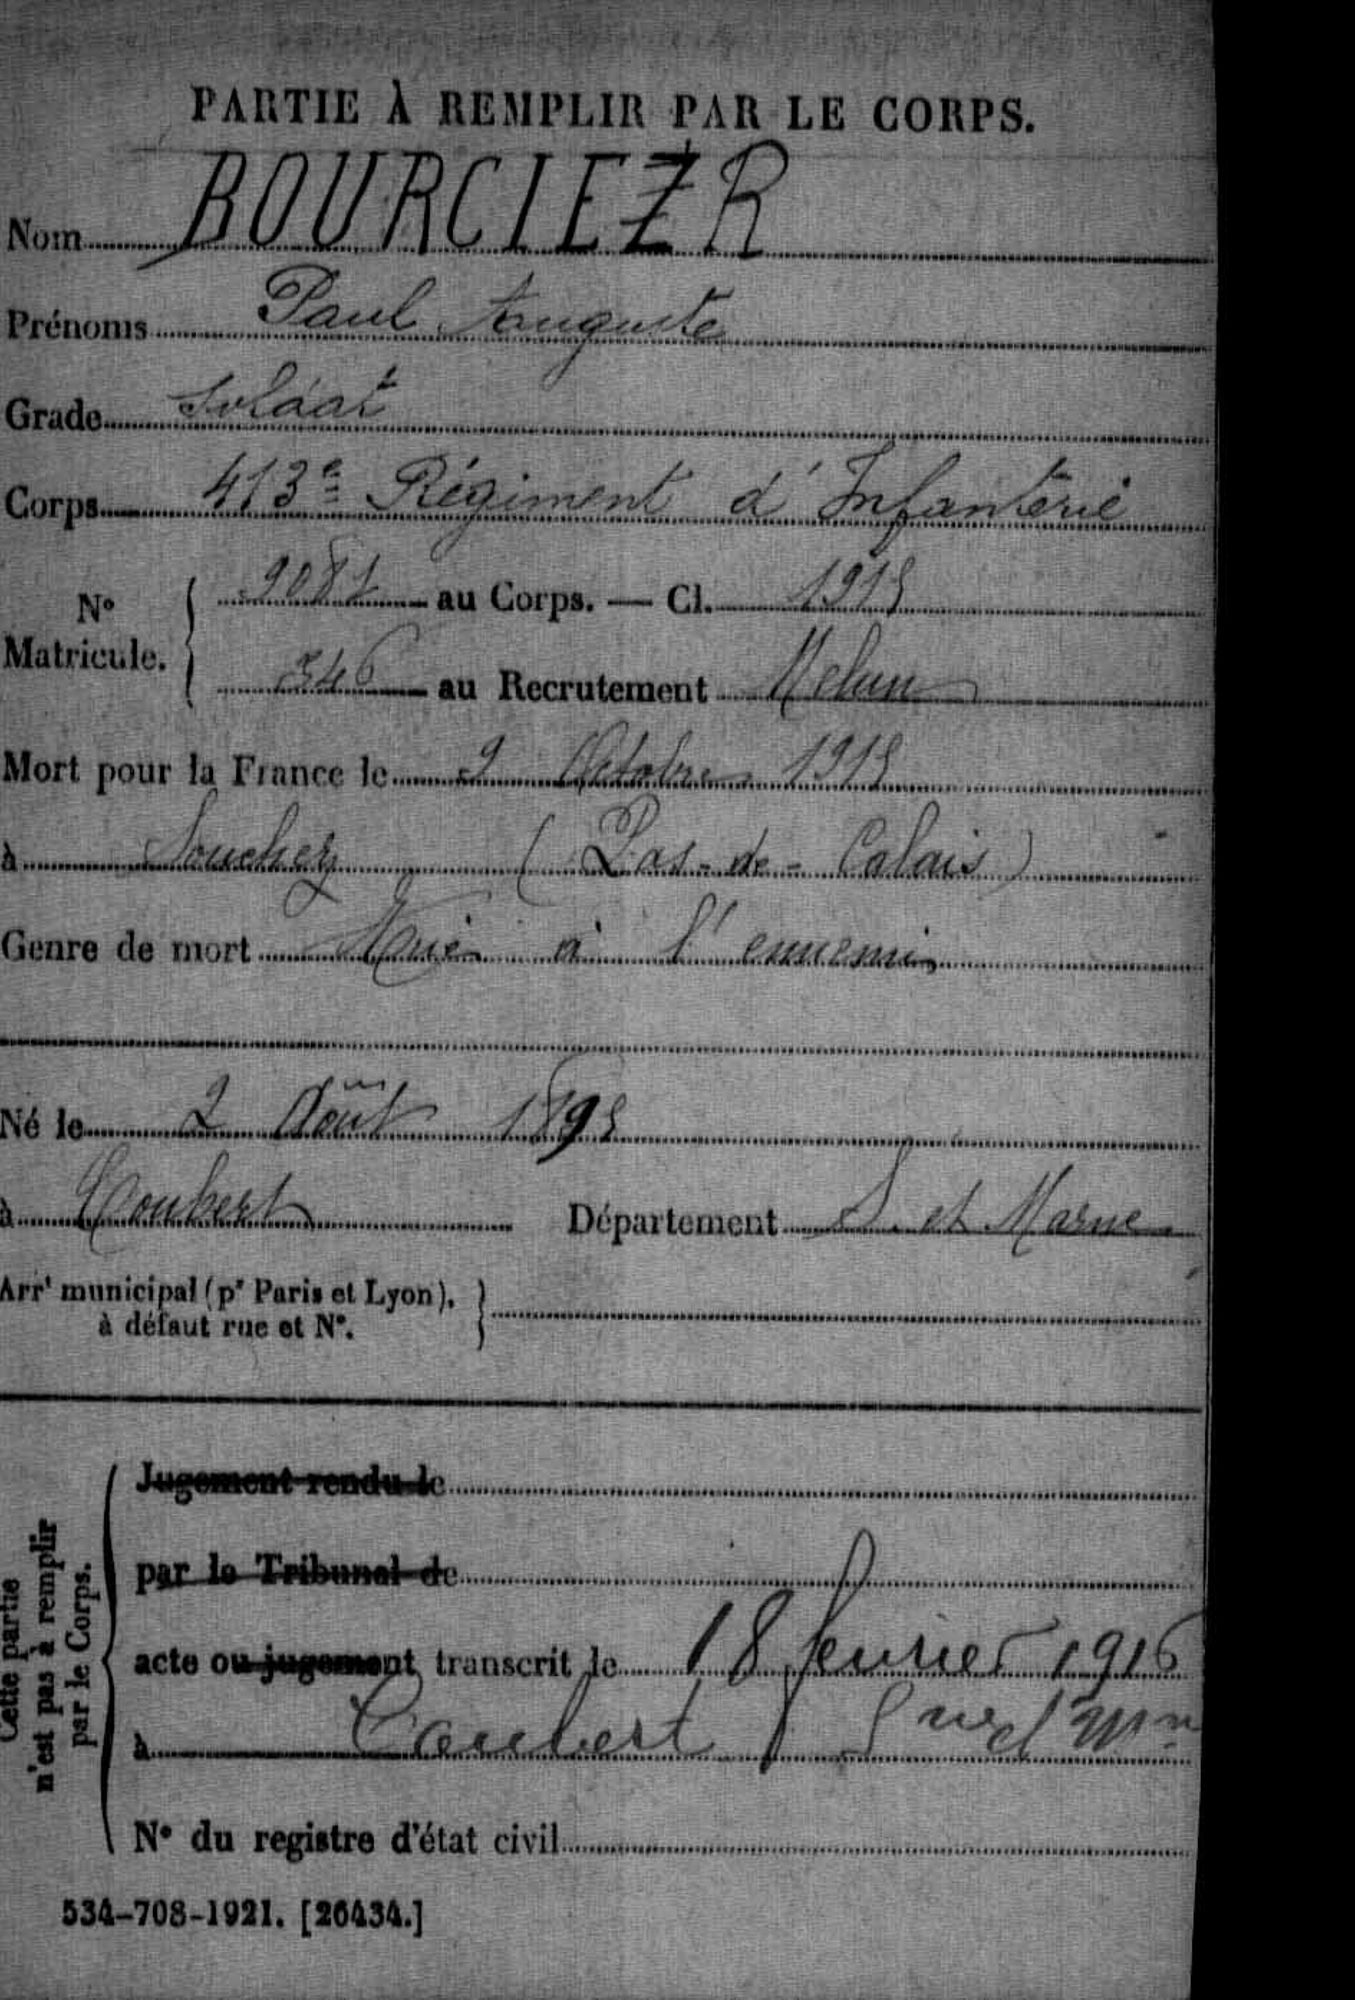 PARTIE À REMPLIR PAR LE CORPS.
Nom BOURCIEZR
Prénoms Paul Auguste
Grade Soldat
Corps 413e Régiment d'Infanterie
N° Matricule. { 9081 au Corps. — Cl. 1915
546 au Recrutement Melun
Mort pour la France le 2 Octobre 1915
à Souchez (Pas-de-Calais)
Genre de mort Tué à l'ennemi
Né le 2 Août 1895
à Coubert Département S. et Marne
Arrt municipal (pr Paris et Lyon), }
à défaut rue et N°.
Cette partie
n'est pas à remplir
par le Corps.
Jugement rendu le
par le Tribunal de
acte ou jugement transcrit le 18 février 1916
à Coubert Sne et Mne
N° du registre d'état civil
534-708-1921. [26434.]